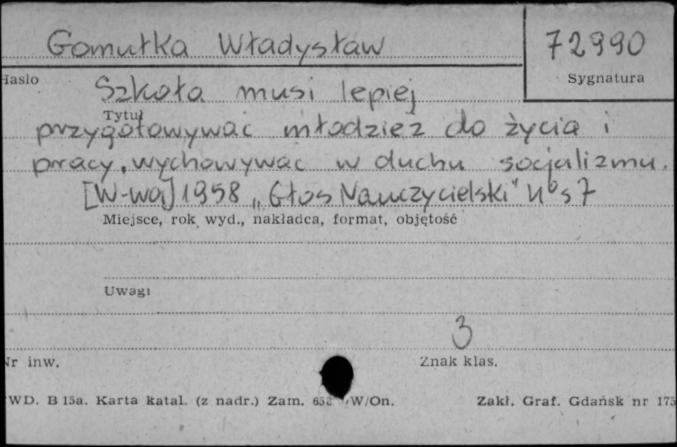 Gomułka Władysław
72990
Hasło
Sygnatura
Szkoła musi lepiej
Tytuł
przygotowywać młodzież do życia i
pracy, wychowywać w duchu socjalizmu.
[W-wa] 1958 „Głos Nauczycielski" s 7
Miejsce, rok wyd., nakładca, format, objętość
Uwagi
3
Nr inw.
Znak klas.
WD. B 15a. Karta katal. (z nadr.) Zam. W/On.
Zakł. Graf. Gdańsk nr 175